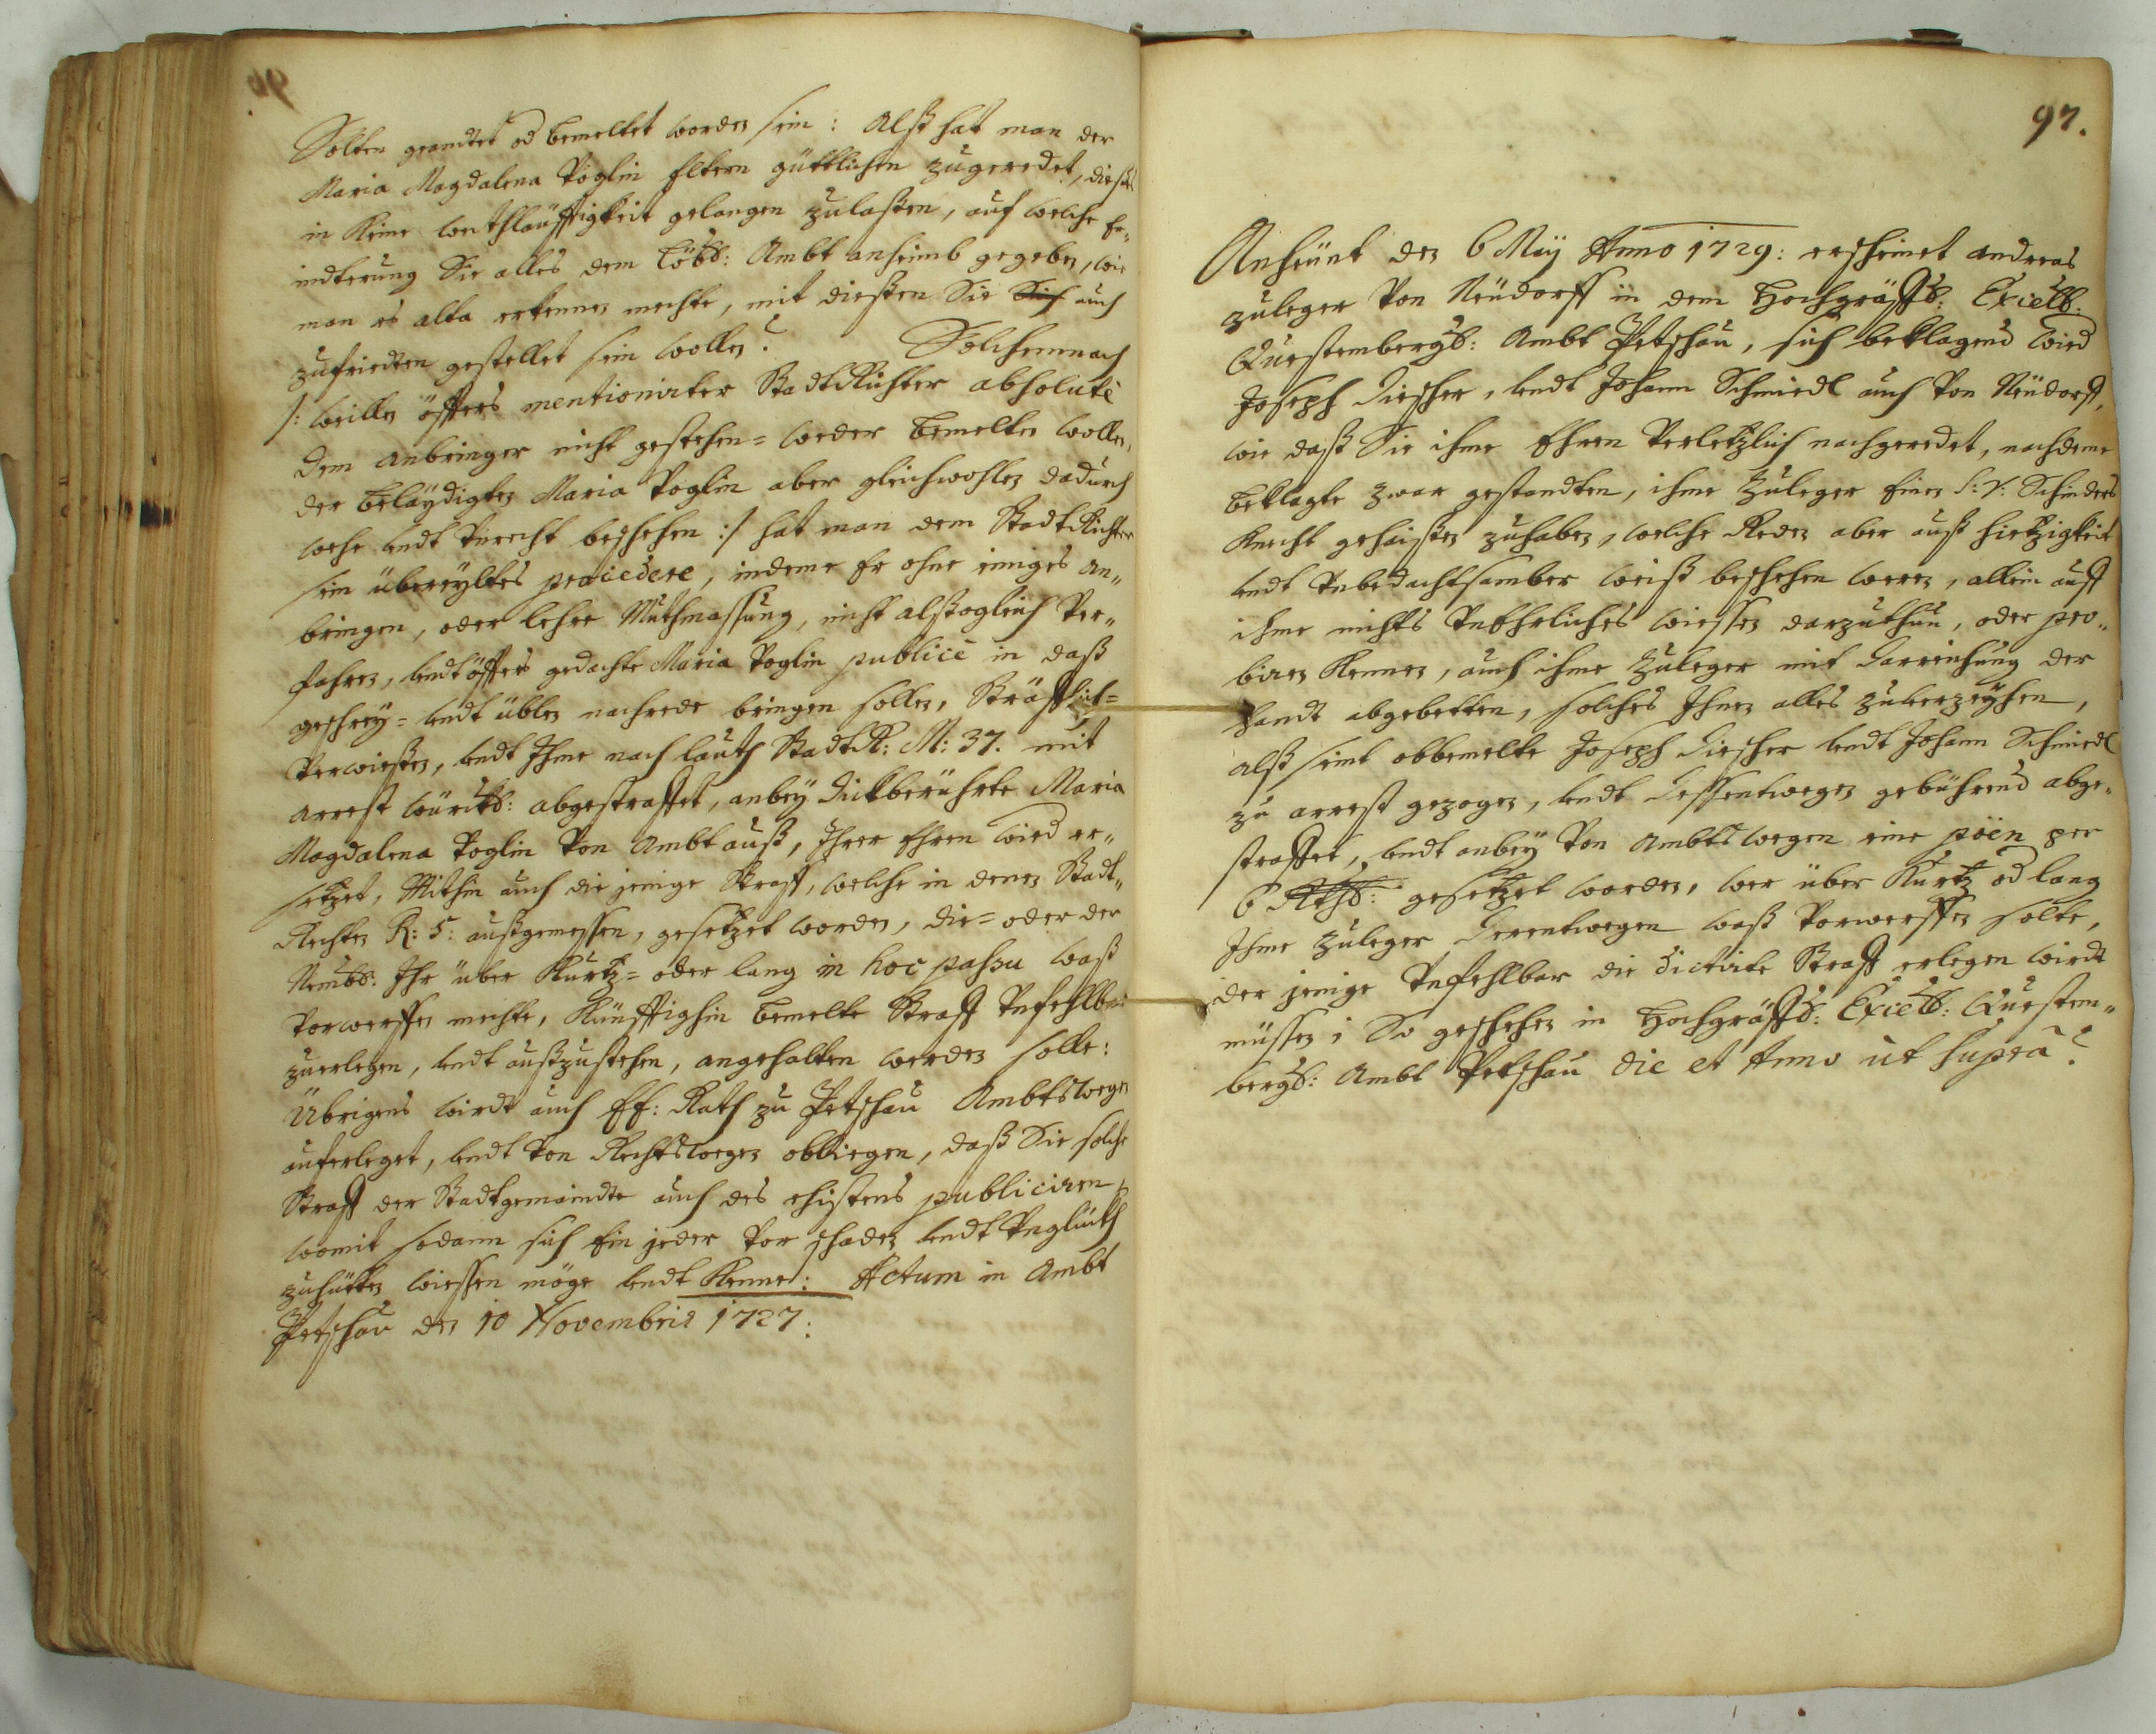 Solten geandtet od bemeltet worden sein: Alß hat man der
Maria Magdalena Voglin Eltern güttlichen zugeredet, dießes
in Keine weithläuffigkeit gelangen zulaßen, auf welche Er„
inderung Sie alles dem Löbl: Ambt anheimb gegeben, wie
man es alda erkennen mechte, mit dießen Sie Sich auch
zufrieden gestellet sein wollen. Solchemnach
/: weillen öffters mentionirter Stadt Richter absolutè
dem anbringer nicht gestehen= weder bemelten wollen,
der beläydigten Maria Voglin aber gleichwohlen dadurch
wehe undt unrecht beschehen :/ hat man dem Stadt Richter
sein übereyltes procedere, indeme Er ohne einiges an„
bringen, oder lehre Muthmassung, nicht alßogleich Ver„
fahren, undt öffters gedachte Maria Voglin publicè in daß
geschrey= undt üblen nachrede bringen sollen, Sträfflich=
Verwießen, undt Ihme nach lauth Stadt R: M: 37. mit
arrest würckl: abgestraffet, anbey dickberührte Maria
Magdalena Voglin Von Ambt auß, Ihrer Ehren wird er„
setzet, Mithin auch die jenige Straff, welche in denen Stadt„
Rechten R: 5: außgemessen, gesetzet worden, die= oder der
Nembl: Ihr über Kurtz= oder lang in hoc passu waß
Vorwerffen mechte, Künfftighin bemelte Straff Unfehlbar
zuerlegen, undt außzustehen, angehalten werden solle:
Übrigens wirdt auch Ef: Rath zu Petschau Ambtswegen
auferleget, undt Von Rechtswegen obliegen, daß Sie solche
Straff der Stadtgemeindte auch des ehistens publiciren,
womit sodann sich Ein jeder Vor schaden undt Unglückh
zuhütten wiessen möge undt Kenne: Actum in Ambt
Petschau den 10 Novembris 1727:
97.
Anheünt den 6 Maÿ Anno 1729: erscheinet Andreas
Zuleger Von Neüdorff in dem Hochgräffl: Excell:
Questembergl: Ambt Petschau, sich beklagend wied
Joseph Fischer, undt Johann Schmiedl auch Von Neüdorff,
wie daß Sie ihme Ehren Verletzlich nachgeredet, nachdeme
beklagte zwar gestandten, ihme Zuleger Einen S: V: Schinders
Knecht gehaißen zuhaben, welche Reden aber auß hietzigkeit
undt Unbedachtsamber weiß beschehen weren, allein auff
ihme nichts Unehrliches wiessen darzuthun, oder pro„
biren Kennen, auch ihme Zuleger mit Darreichung der
handt abgebetten, solches Ihnen alles zuverzeyhen,
alß seint obbemelte Joseph Fischer undt Johann Schmiedl
zu arrest gezogen, undt dessentwegen gebührend abge„
straffet, undt anbey Von Ambts wegen eine pöen per
6 Rthl: gesetzet worden, wer über Kurtz od lang
Ihme Zuleger derentwegen waß Vorwerffen solte,
der jenige Unfehlbar die dictirte Straff erlegen wirdt
müssen; So geschehen in Hochgräffl: Excell: Questem„
bergl: Ambt Petschau die et Anno ut suprà.